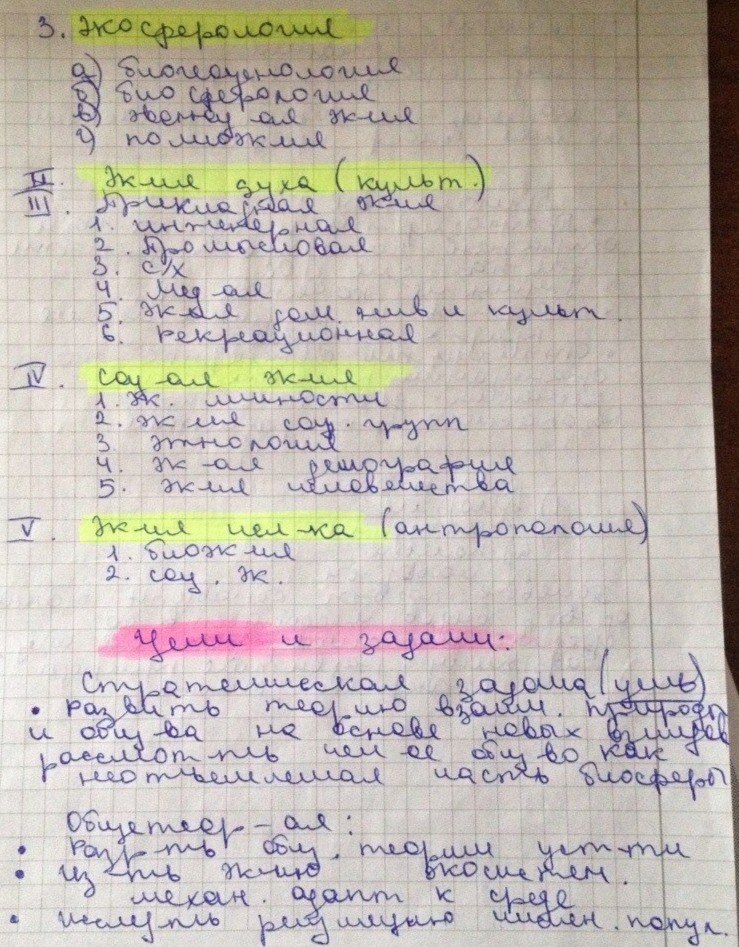 3. Экосферология
а) биогеоценология
б) биосферология
в) эволюц-ая эк-ия
г) палиоэк-ия
II. Эк-ия духа (культ.)
III. Прикладная эк-ия
1. инженерная
2. Промысловая
3. с/х
4. мед-ая
5. Эк-ия дом. жив и культ.
6. рекреационная
IV. соц-ая эк-ия
1. Эк. личности
2. Эк-ия соц. групп
3. Этнология
4. Эк-ая демография
5. Эк-ия человечества
V. Эк-ия чел-ка (антропология)
1. биоэк-ия
2. соц. эк.
Цели и задачи:
Стратегическая задача (цель)
• развить теорию взаим. природы
и общ-ва на основе новых взглядов
рассмот-ть чел-ое общ-во как
неотъемлемая часть биосферы
Общетеор-ая:
• разр-ть общ. теории уст-ти
• из-ть эк-ию экосистем.
механ. адапт к среде
• исслед-ть регуляцию числен. попул.